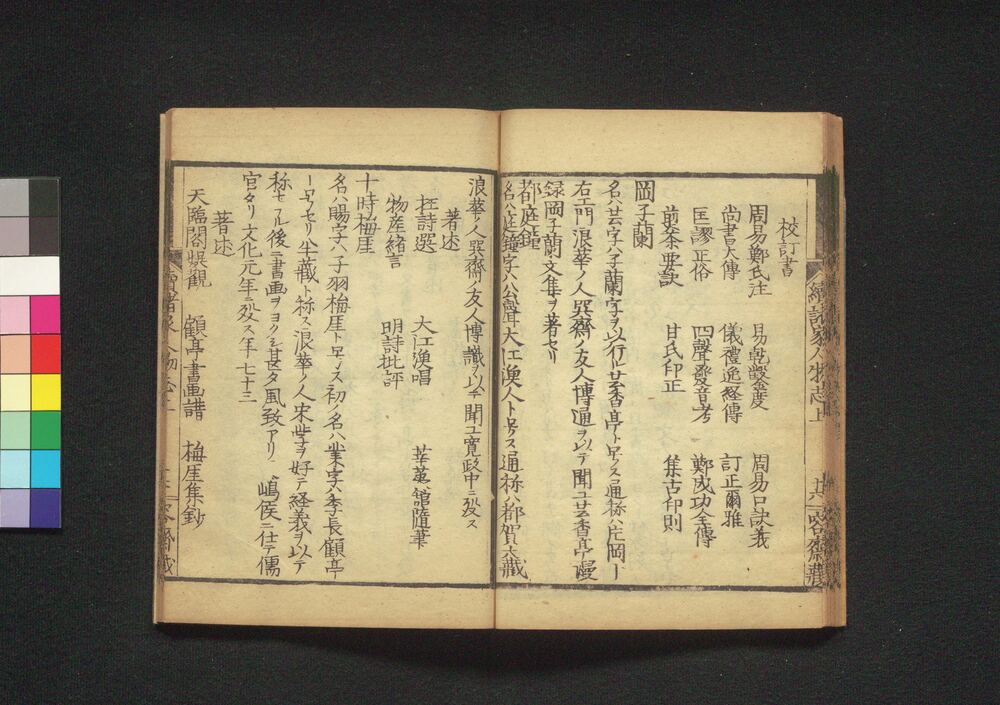 續諸家人物志上
廿六
名齋藏
校訂書
周易鄭氏注 易乾鑿度 周易口訣義
尚書大傳 儀禮逸経傳 訂正爾雅
匡謬正俗 四聲發音考 鄭成功全傳
煎茶要訣 甘氏印正 集古印則
岡子蘭
名ハ芸字ハ子蘭字ヲ以行ル芸香亭ト号ス通称ハ庄岡一
右エ門浪華ノ人巽齋ノ友人博通ヲ以テ聞ユ芸香亭漫
録岡子蘭文集ヲ著セリ
都庭鐘
名ハ庭鐘字ハ公聲大江漁人ト号ス通称ハ都賀六蔵
浪華ノ人巽齋ノ友人博識ヲ以テ聞ユ寛政中ニ殁ス
著述
狂詩選 大江漁唱 莘莄館隨筆
物産緒言 明詩批評
十時梅厓
名ハ賜字ハ子羽梅厓ト号ス初ノ名ハ業字ハ季長顧亭
ト号セリ半蔵ト称ス浪華ノ人宋学ヲ好テ経義ヲ以テ
称セラル後ニ書画ヲヨクシ甚タ風致アリ嶋侯ニ仕テ儒
官タリ文化元年ニ殁ス年七十三
著述
天臨閣娯観 顧亭書畫譜 梅厓集鈔
續諸家人物志上